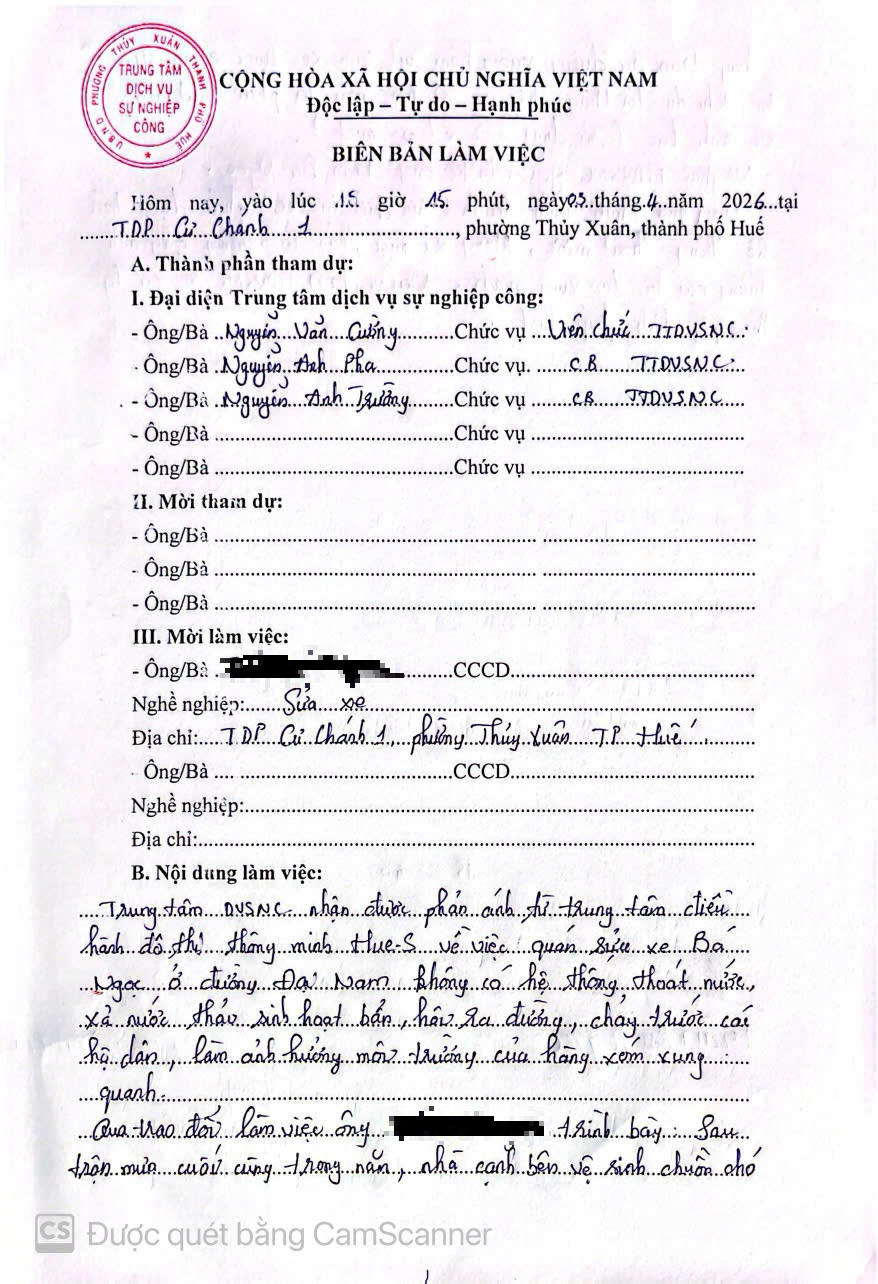 U.B.N.D PHƯỜNG THỦY XUÂN THÀNH PHỐ HUẾ
TRUNG TÂM
DỊCH VỤ
SỰ NGHIỆP
CÔNG
CỘNG HÒA XÃ HỘI CHỦ NGHĨA VIỆT NAM
Độc lập – Tự do – Hạnh phúc
BIÊN BẢN LÀM VIỆC
Hôm nay, vào lúc 15 giờ 15 phút, ngày 03 tháng 4 năm 2026 tại
TDP Cư Chánh 1, phường Thủy Xuân, thành phố Huế
A. Thành phần tham dự:
I. Đại diện Trung tâm dịch vụ sự nghiệp công:
- Ông/Bà Nguyễn Văn Cường Chức vụ Viên chức TTDVSNC
- Ông/Bà Nguyễn Anh Pha Chức vụ CB TTDVSNC
- Ông/Bà Nguyễn Anh Trường Chức vụ CB TTDVSNC
- Ông/Bà Chức vụ
- Ông/Bà Chức vụ
II. Mời tham dự:
- Ông/Bà
- Ông/Bà
- Ông/Bà
III. Mời làm việc:
- Ông/Bà CCCD
Nghề nghiệp: Sửa xe
Địa chỉ: TDP Cư Chánh 1, phường Thủy Xuân TP Huế
- Ông/Bà CCCD
Nghề nghiệp:
Địa chỉ:
B. Nội dung làm việc:
Trung tâm DVSNC nhận được phản ánh từ trung tâm điều
hành đô thị thông minh Hue-S về việc quán sửa xe Bá
Ngọc ở đường Đại Nam không có hệ thống thoát nước,
xả nước thải sinh hoạt bẩn, hôi ra đường, chảy trước các
hộ dân, làm ảnh hưởng môi trường của hàng xóm xung
quanh.
Qua trao đổi làm việc ông trình bày: Sau
trận mưa cuối cùng trong năm, nhà cạnh bên vệ sinh chuồn chó
CS Được quét bằng CamScanner